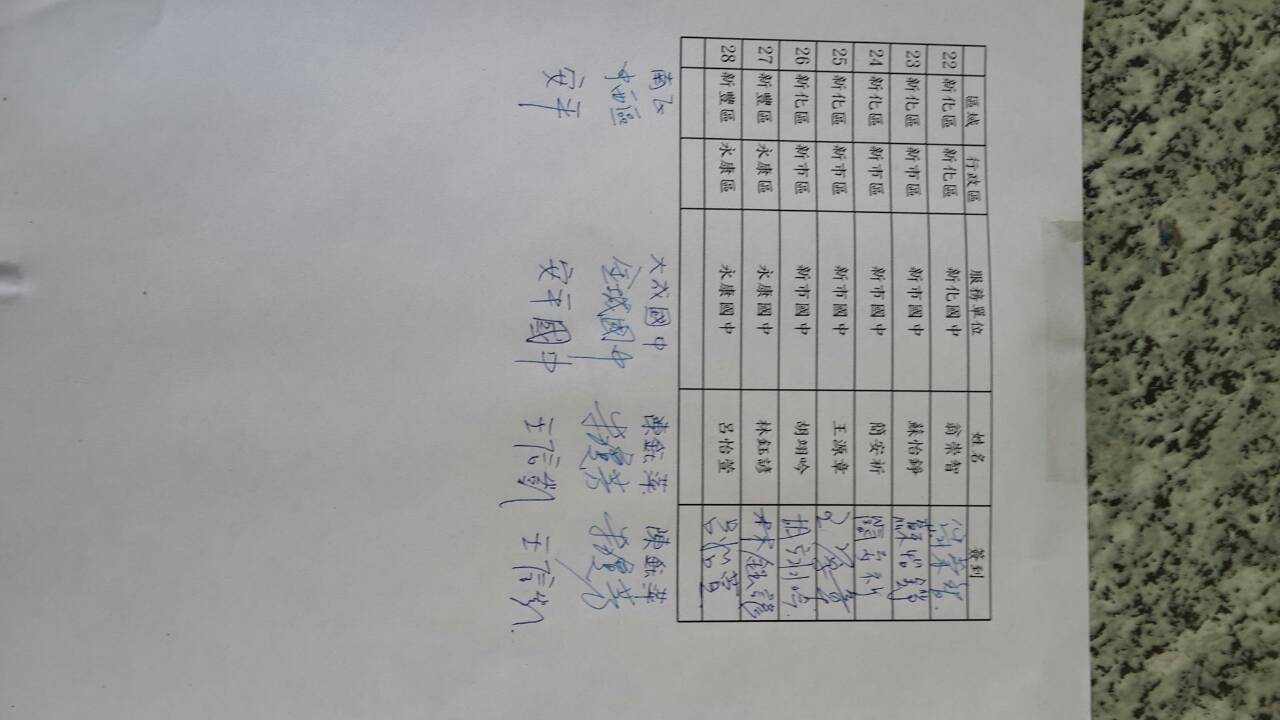 區域 行政區 服務單位 姓名 簽到
22 新化區 新化區 新化國中 翁崇智 翁崇智
23 新化區 新市區 新市國中 蘇怡錚 蘇怡錚
24 新化區 新市區 新市國中 簡安祈 簡安祈
25 新化區 新市區 新市國中 王源章 王源章
26 新化區 新市區 新市國中 胡翊吟 胡翊吟
27 新豐區 永康區 永康國中 林鈺諺 林鈺諺
28 新豐區 永康區 永康國中 呂怡萱 呂怡萱
南區 大成國中
中西區 金城國中
安平 安平國中